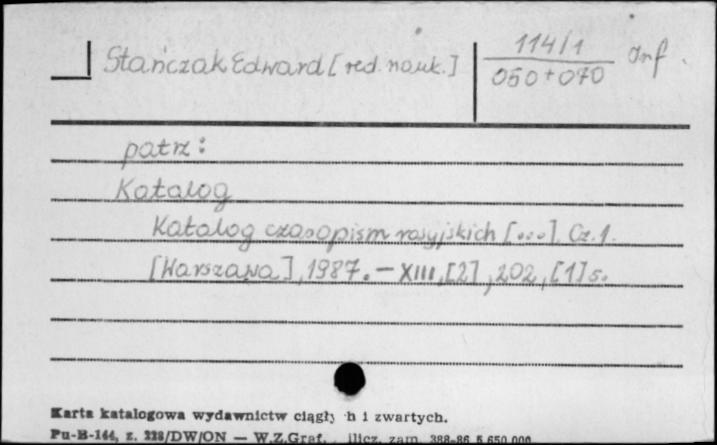 Stańczak Edward [red. nauk.]
114/1
050+070
Inf.
patrz:
Katalog
Katalog czasopism rosyjskich [...]. Cz.1.
[Warszawa], 1987. — XIII, [2], 202, [1] s.
Karta katalogowa wydawnictw ciągły h i zwartych.
Pu-B-144, z. 228/DW/ON — W.Z.Graf. zam. 388-86 5 650 000